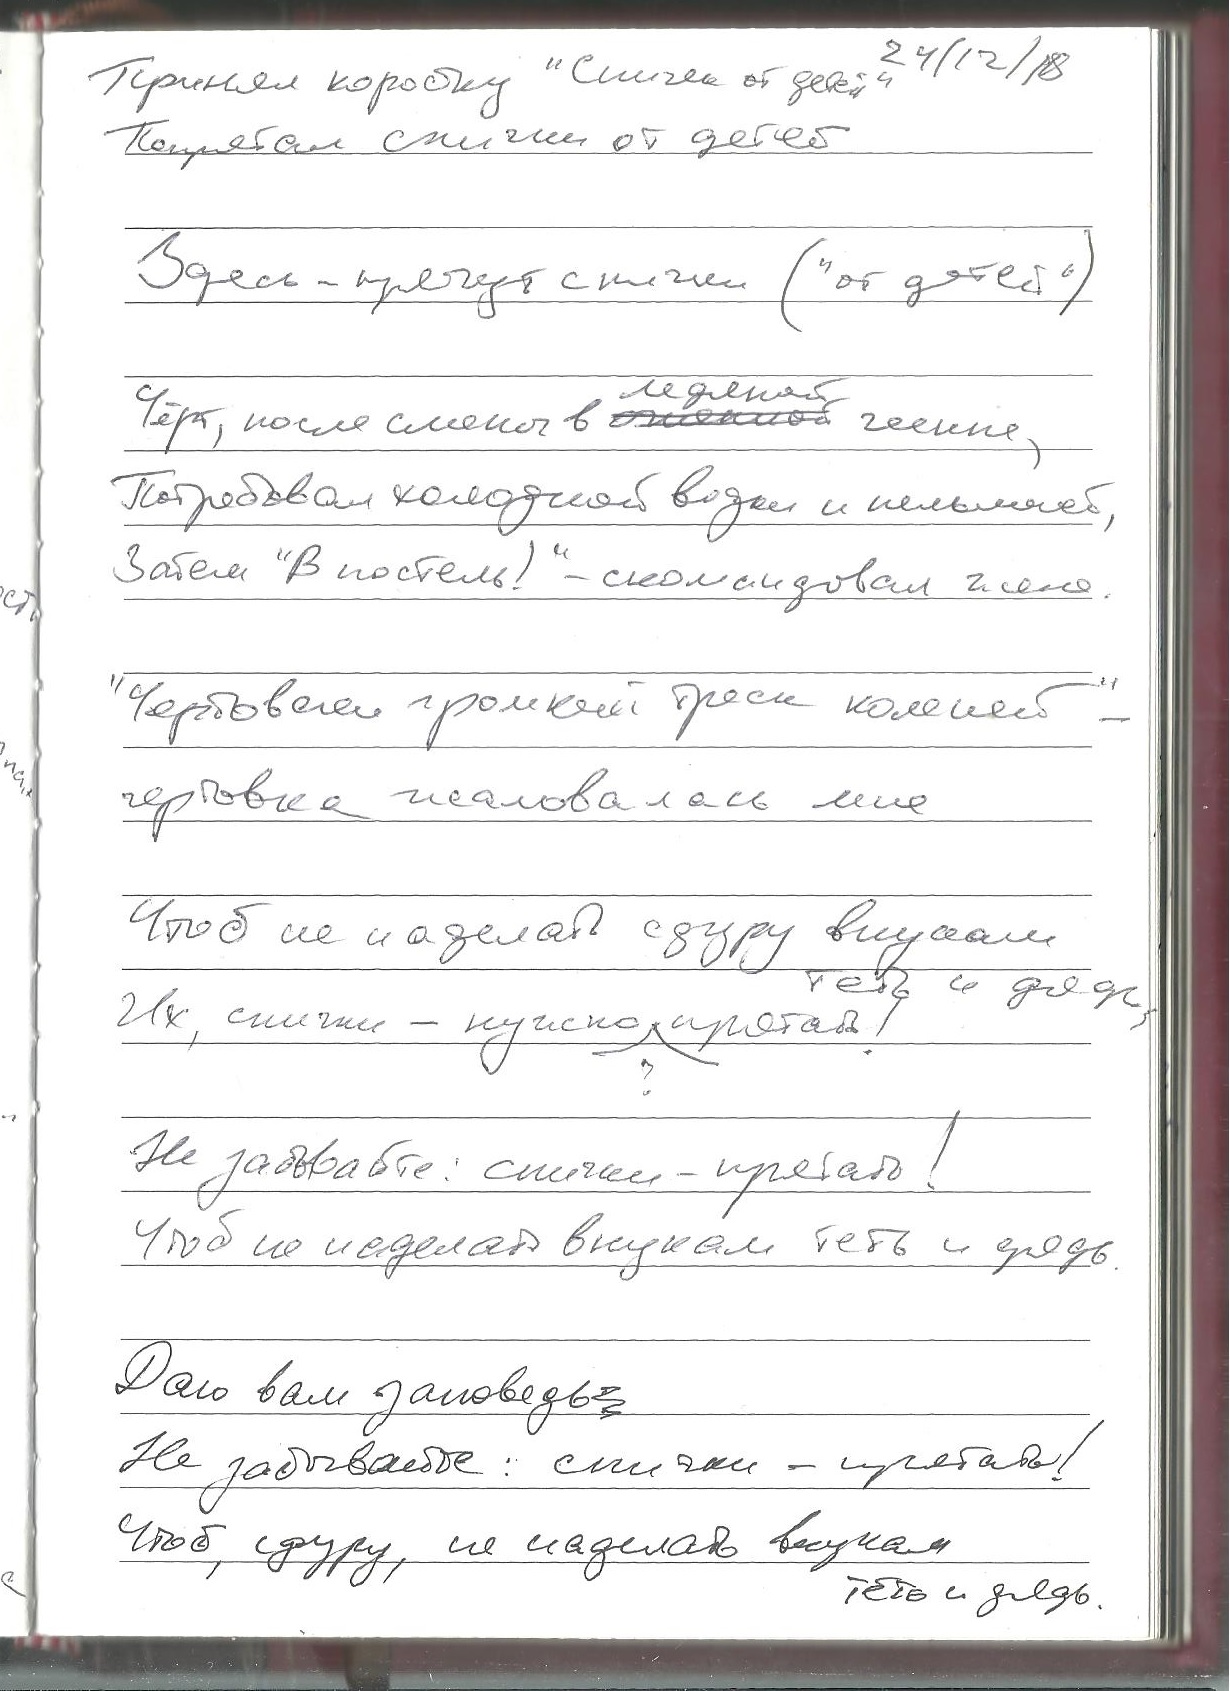 24/12/18
Принял коробку "Спички от детей"
Попрятал спички от детей
Здесь – прячут спички ("от детей")
ледяной
Чёрт, после смены в огненной геенне,
Потребовал холодной водки и пельменей,
Затем "В постель!" – скомандовал жене.
"Чертовски громкий треск коленей" –
чертовка жаловалась мне
Чтоб не наделать сдуру внукам
теть и дядь,
Их, спички – нужно прятать!
?
Не забывайте: спички – прятать!
Чтоб не наделать внукам теть и дядь.
Даю вам заповедь
Не забывайте: спички – прятать!
Чтоб, сдуру, не наделать внукам
тёть и дядь.